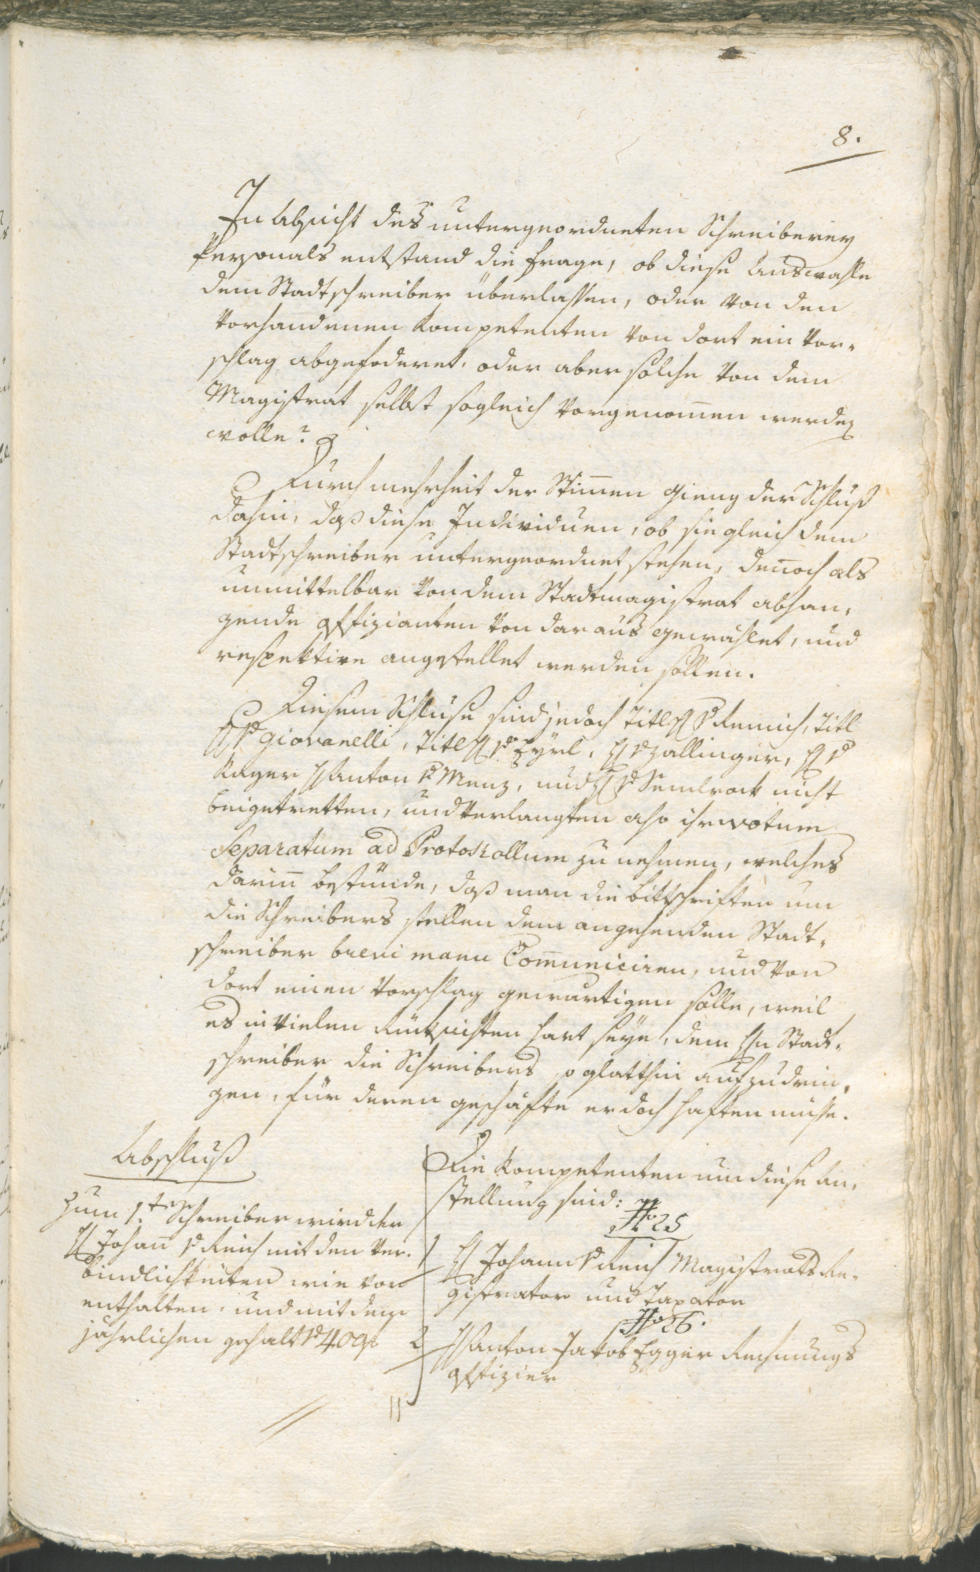 8.
In Absicht des untergeordneten Schreiberey
Personals entstand die Frage, ob diese Auswahle
dem Stadtschreiber überlassen, oder von den
vorhandenen Kompetenten von dort ein Vor-
schlag abgefoderet, oder aber solche von dem
Magistrat selbst sogleich vorgenom̅en werden
wolle?
Durch mehrheit der Stim̅en gieng der Schluß
dahin, daß diese Individuen, ob sie gleich dem
Stadtschreiber untergeordnet stehen, den̅och als
unmittelbar von dem Stadtmagistrat abhan-
gende Offizianten von daraus gewählet, und
respektive angestellet werden sollen.
Diesem Schluße sind jedoch Titl H v Remich, Titl
H v Giovanelli, Titl H v Eyrl, H v Zallinger, H v
Kager H Anton v Menz, und H v Semlrock nicht
beigetretten, und verlangten also ihr votum
Separatum ad Protokollum zu nehmen, welches
darin̅ bestünde, daß man die bittschriften um
die Schreibers stellen dem angehenden Stadt-
schreiber brevi manu Com̅uniciren, und von
dort einen Vorschlag gewärtigen solle, weil
es in vielen Rücksichten hart seye, dem Hn Stadt-
schreiber die Schreibers so glatthin aufzudrin-
gen, für deren geschäfte er doch haften müsse.
Abschluß
Zum 1.ten Schreiber wird der
H Johan̅ v Reich mit den Ver-
bindlichkeiten wie von
enthalten, und mit dem
jährlichen gehalt v 400 f
Die Kompetenten um diese An-
stellung sind:
No 25
1 H Johann v Reich Magistrats Re-
gistrator und Taxator
No 26.
2 H Anton Jakob Egger Rechnungs
Offizier